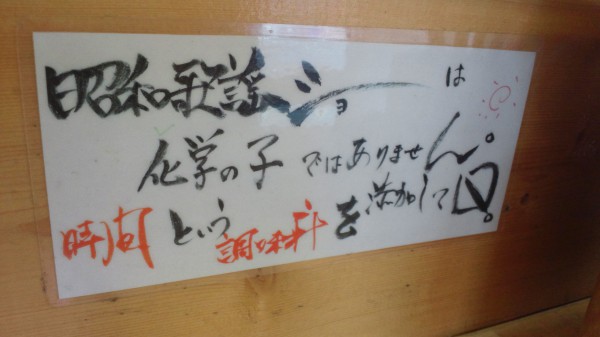 昭和歌謡ショーは
化学の子ではありません。
時間という調味料を添加してます。